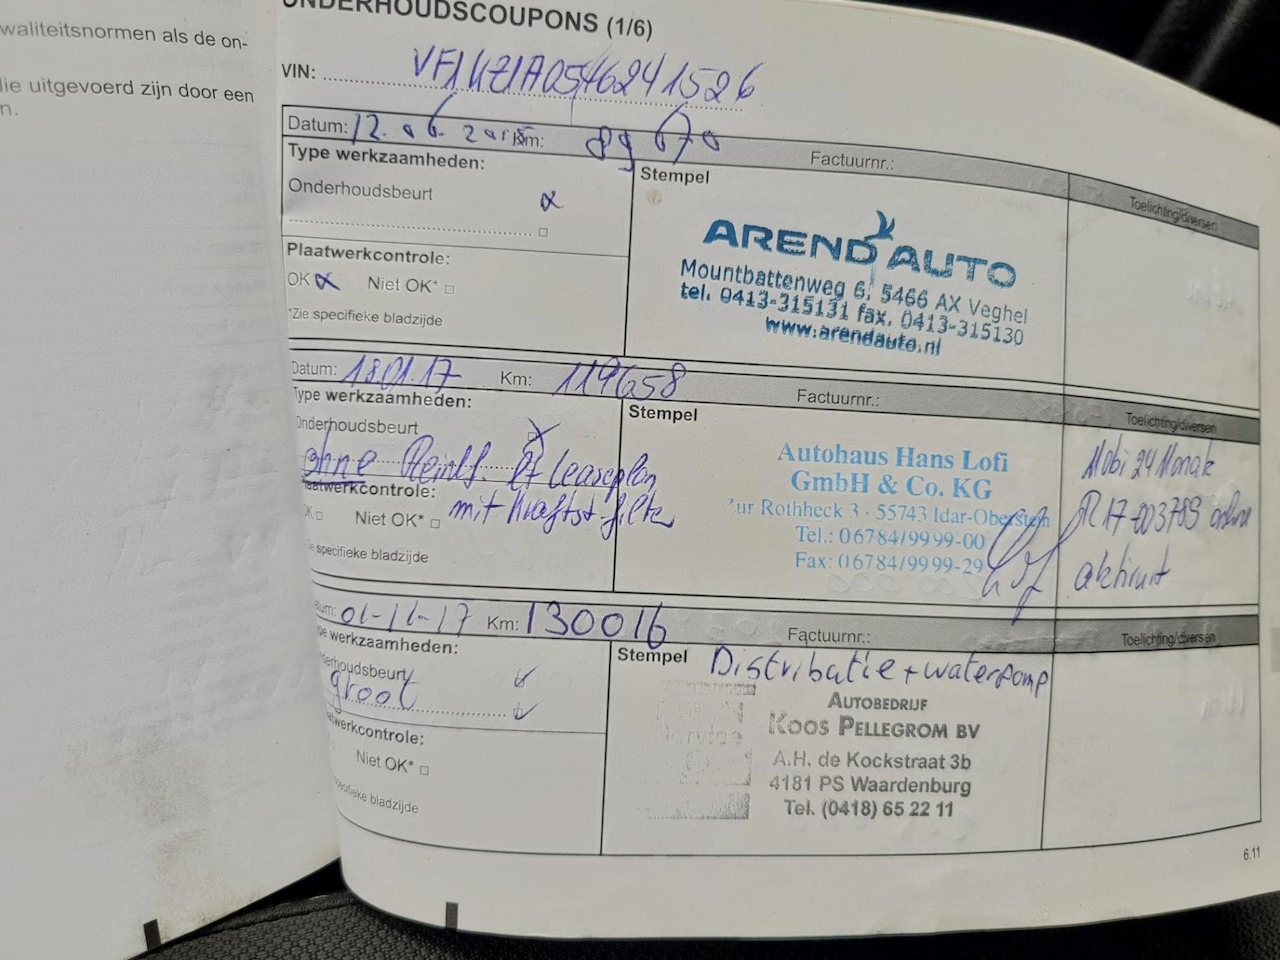 waliteitsnormen als de on-
lie uitgevoerd zijn door een
n.
ONDERHOUDSCOUPONS (1/6)
VIN:
Datum: 12.06.2015 Km: 89 670 Factuurnr.: Toelichting/diversen
Type werkzaamheden:
Onderhoudsbeurt
Plaatwerkcontrole:
OK Niet OK*
*Zie specifieke bladzijde
Stempel
AREND AUTO
Mountbattenweg 6, 5466 AX Veghel
tel. 0413-315131 fax. 0413-315130
www.arendauto.nl
Datum: 18.01.17 Km: 119658 Factuurnr.: Toelichting/diversen
Type werkzaamheden:
Onderhoudsbeurt
ohne Leaseplan
Plaatwerkcontrole:
mit Kraftst. filter
OK Niet OK*
Zie specifieke bladzijde
Stempel
Autohaus Hans Lofi
GmbH & Co. KG
Zur Rothheck 3 · 55743 Idar-Oberstein
Tel.: 06784/9999-00
Fax: 06784/9999-29
Mobi 24 Monate
online
aktiviert
Datum: 01-11-17 Km: 130016 Factuurnr.: Toelichting/diversen
Type werkzaamheden:
Onderhoudsbeurt
groot
Plaatwerkcontrole:
Niet OK*
specifieke bladzijde
Stempel Distributie + waterpomp
AUTOBEDRIJF
KOOS PELLEGROM BV
A.H. de Kockstraat 3b
4181 PS Waardenburg
Tel. (0418) 65 22 11
6.11